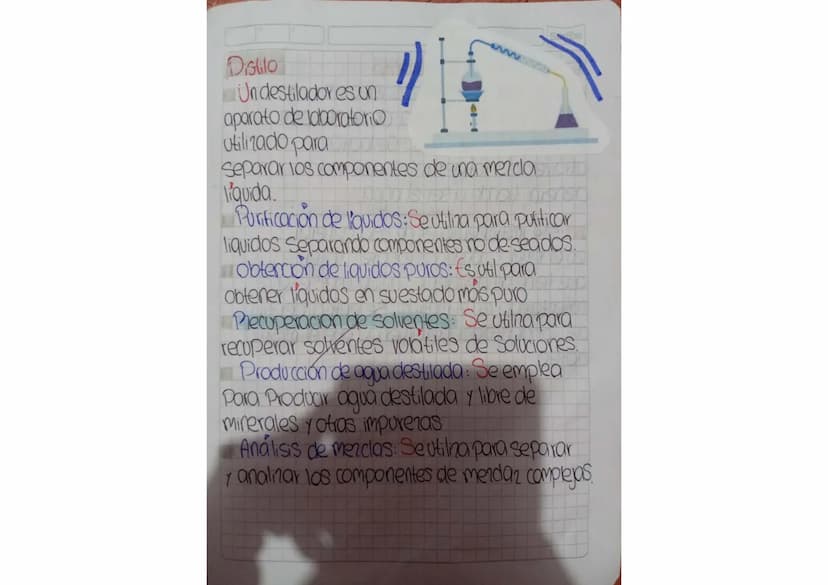 Distilo
Un destilador es un
aparato de laboratorio
utilizado para
separar los componentes de una mezcla
líquida.
Purificación de líquidos: Se utiliza para putificar
liquidos separando componentes no deseados.
obtención de liquidos puros: Es util para
obtener líquidos en su estado más puro
Recuperacion de solventes: Se utiliza para
recuperar solventes volátiles de soluciones.
Producción de agua destilada: Se emplea
para producir agua destilada y libre de
minerales y otras impurezas
Análisis de mezclas: Se utiliza para separar
y analizar los componentes de mezclaz complejas.